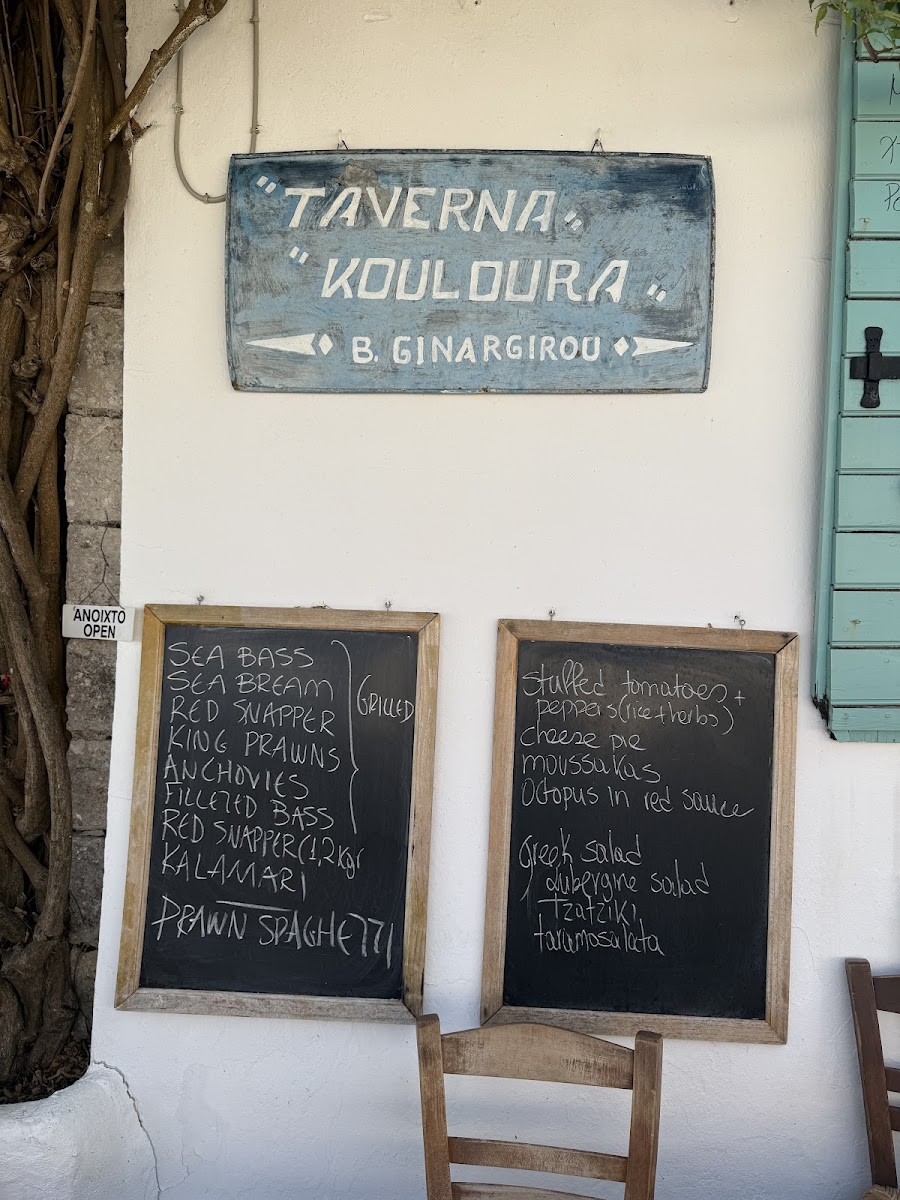 "TAVERNA"
"KOULOURA"
B. GINARGIROU
ΑΝΟΙΧΤΟ
OPEN
SEA BASS
SEA BREAM
RED SNAPPER
KING PRAWNS
ANCHOVIES
FILLETED BASS
GRILLED
RED SNAPPER (1,2kgr
KALAMARI
PRAWN SPAGHETTI
stuffed tomatoes +
peppers (rice + herbs)
cheese pie
moussakas
Octopus in red sauce
Greek salad
Aubergine salad
Tzatziki
taramosalata